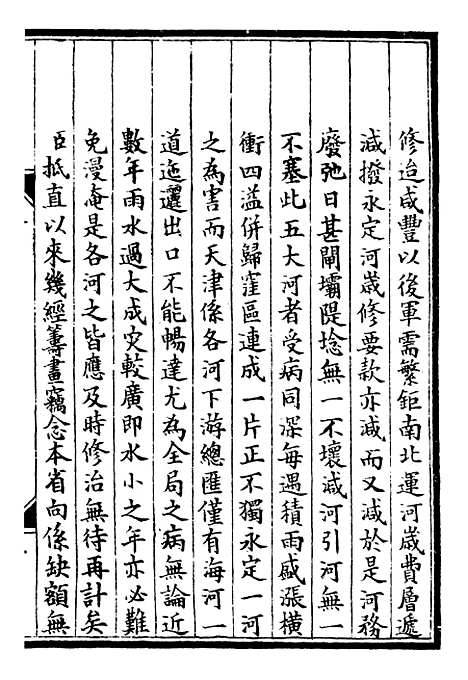 修迨咸豐以後軍需繁鉅南北運河歲費層遞
減撥永定河歲修要款亦減而又減於是河務
廢弛日甚閘壩隄埝無一不壞減河引河無一
不塞此五大河者受病同深每遇積雨盛漲橫
衝四溢併歸窪區連成一片正不獨永定一河
之為害而天津係各河下游總匯僅有海河一
道迤邐出口不能暢達尤為全局之病無論近
數年雨水過大成灾較廣即水小之年亦必難
免漫淹是各河之皆應及時修治無待再計矣
臣抵直以來幾經籌畫竊念本省向係缺額無